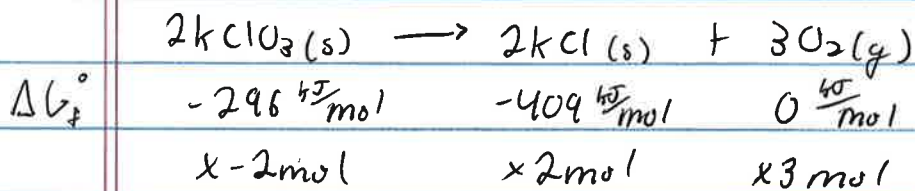 2kClO₃(s) ⟶ 2kCl (s) + 3O₂(g)
ΔG°f -296 kJ/mol -409 kJ/mol 0 kJ/mol
x-2mol x2mol x3mol